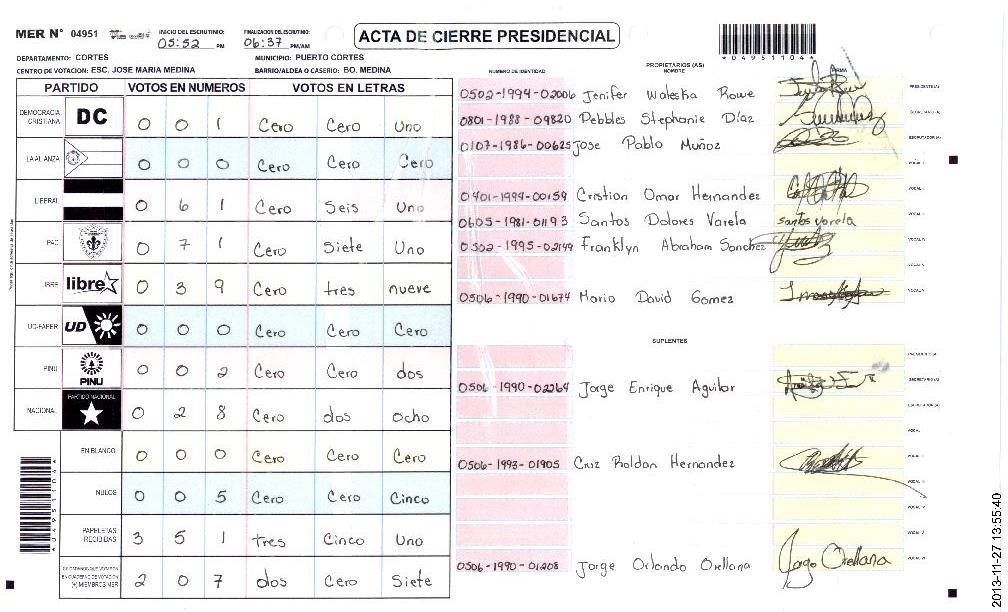 MER N° 04951
INICIO DEL ESCRUTINIO: 05:52 PM
FINALIZACION DEL ESCRUTINIO: 06:37 PM/AM
ACTA DE CIERRE PRESIDENCIAL
*04951104*
DEPARTAMENTO: CORTES
MUNICIPIO: PUERTO CORTES
CENTRO DE VOTACION: ESC. JOSE MARIA MEDINA
BARRIO/ALDEA O CASERIO: BO. MEDINA
PARTIDO VOTOS EN NUMEROS VOTOS EN LETRAS
DEMOCRACIA CRISTIANA DC 0 0 1 Cero Cero Uno
LA ALIANZA 0 0 0 Cero Cero Cero
LIBERAL 0 6 1 Cero Seis Uno
PAC 0 7 1 Cero Siete Uno
LIBRE libre 0 3 9 Cero tres nueve
UD-FAPER UD 0 0 0 Cero Cero Cero
PINU PINU 0 0 2 Cero Cero dos
NACIONAL PARTIDO NACIONAL 0 2 8 Cero dos ocho
EN BLANCO 0 0 0 Cero Cero Cero
NULOS 0 0 5 Cero Cero Cinco
PAPELETAS RECIBIDAS 3 5 1 tres Cinco Uno
CIUDADANOS QUE VOTARON EN CUADERNO DE VOTACION (+) MIEMBROS MER 2 0 7 dos Cero Siete
*04951104*
NUMERO DE IDENTIDAD
PROPIETARIOS (AS)
NOMBRE
FIRMA
0502-1994-02006 Jenifer Waleska Rowe PRESIDENTE (A)
0801-1988-09820 Pebbles Stephanie Díaz SECRETARIO (A)
0107-1986-00625 Jose Pablo Muñoz ESCRUTADOR (A)
VOCAL I
0401-1994-00159 Cristian Omar Hernandez
0605-1981-01193 Santos Dolores Varela santos varela
0502-1995-02149 Franklyn Abraham Sanchez
0506-1990-01674 Mario David Gomez
SUPLENTES
PRESIDENTE (A)
0506-1990-02264 Jorge Enrique Aguilar SECRETARIO (A)
ESCRUTADOR (A)
0506-1993-01905 Cruz Roldan Hernandez
0506-1990-01208 Jorge Orlando Orellana Jorge Orellana
2013-11-27 13:55:40